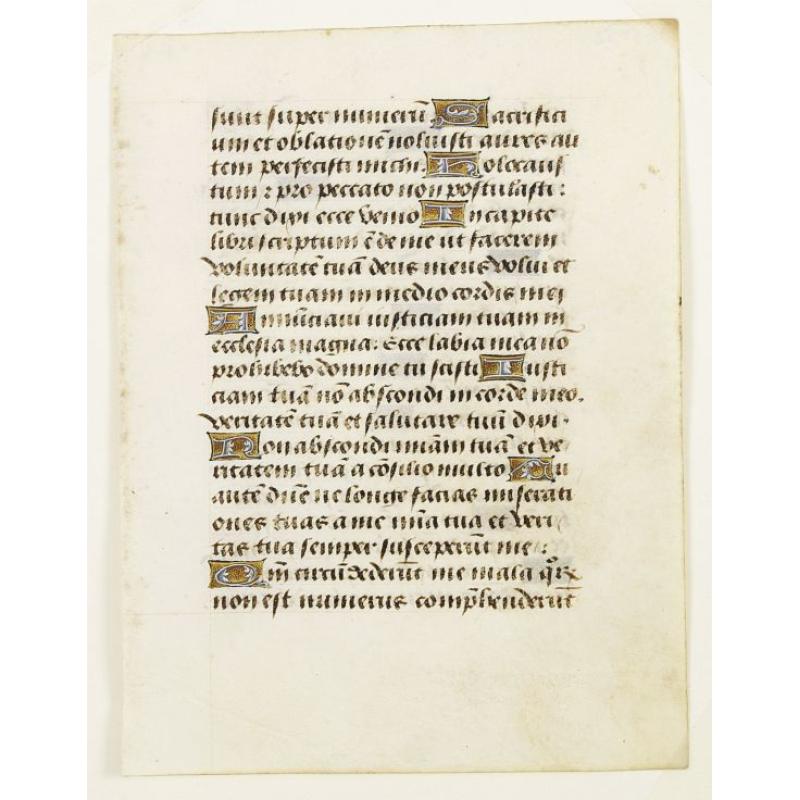 sunt super numerū Sacrifici
um et oblationē noluisti aures au
tem perfecisti michi. Holocaus
tum: pro peccato non postulasti:
tunc dixi ecce venio In capite
libri scriptum ē de me ut facerem
voluntatē tuā deus meus volui et
legem tuam in medio cordis mei
Annunciavi iusticiam tuam in
ecclesia magna: Ecce labia mea nō
prohibebo domine tu scisti Iusti
ciam tuā nō abscondi in corde meo.
veritatē tuā et salutare tuū dixi.
Non abscondi miam tuā et ve
ritatem tuā a cōsilio multo Tu
autē dne ne longe facias miserati
ones tuas a me mia tua et veri
tas tua semper susceperūt me:
Qm̄ circūdederūt me mala qrx
non est numerus comphenderūt